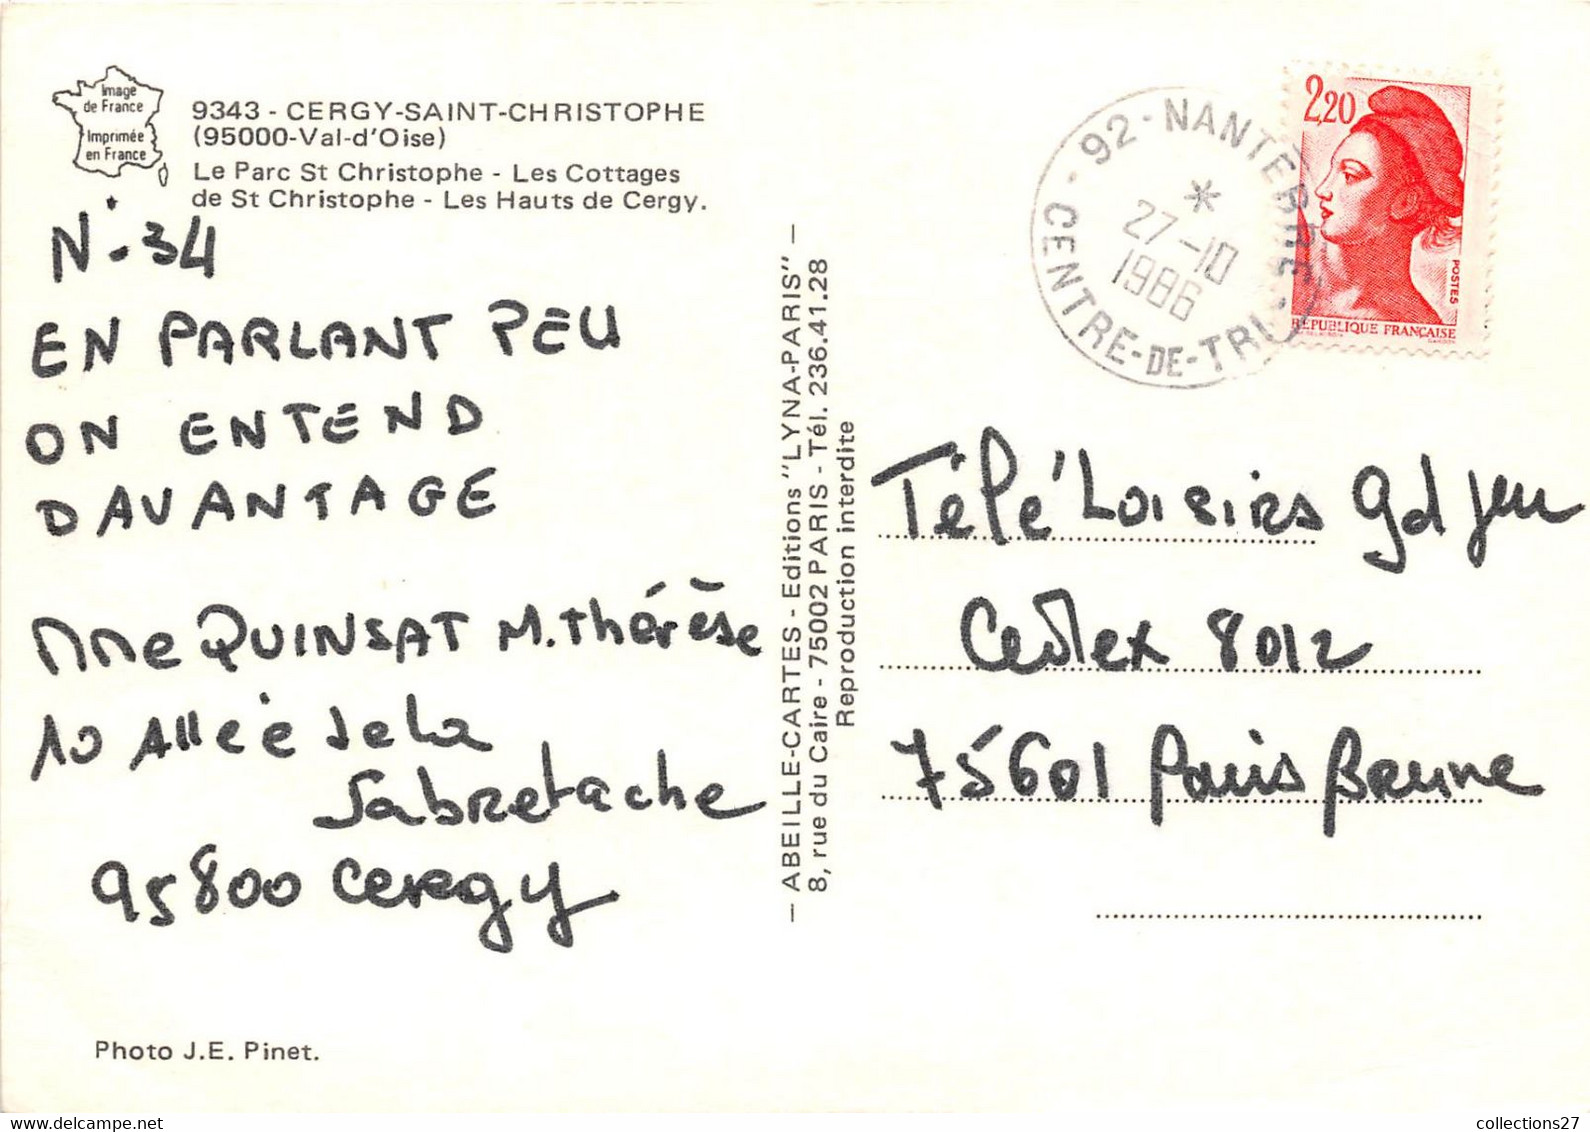 Image
de France
Imprimée
en France
9343 - CERGY-SAINT-CHRISTOPHE
(95000-Val-d'Oise)
Le Parc St Christophe - Les Cottages
de St Christophe - Les Hauts de Cergy.
N° 34
EN PARLANT PEU
ON ENTEND
DAVANTAGE
Mme QUINSAT M. Thérèse
10 Allée de la
Sabretache
95800 Cergy
Photo J.E. Pinet.
— ABEILLE-CARTES - Editions "LYNA-PARIS" —
8, rue du Caire - 75002 PARIS - Tél. 236.41.28
Reproduction interdite
92 - NANTERRE
CENTRE-DE-TRI
*
27-10
1986
2,20
POSTES
RÉPUBLIQUE FRANÇAISE
Télé Loisirs gd jeu
Cedex 8012
75601 Paris Brune
collections27